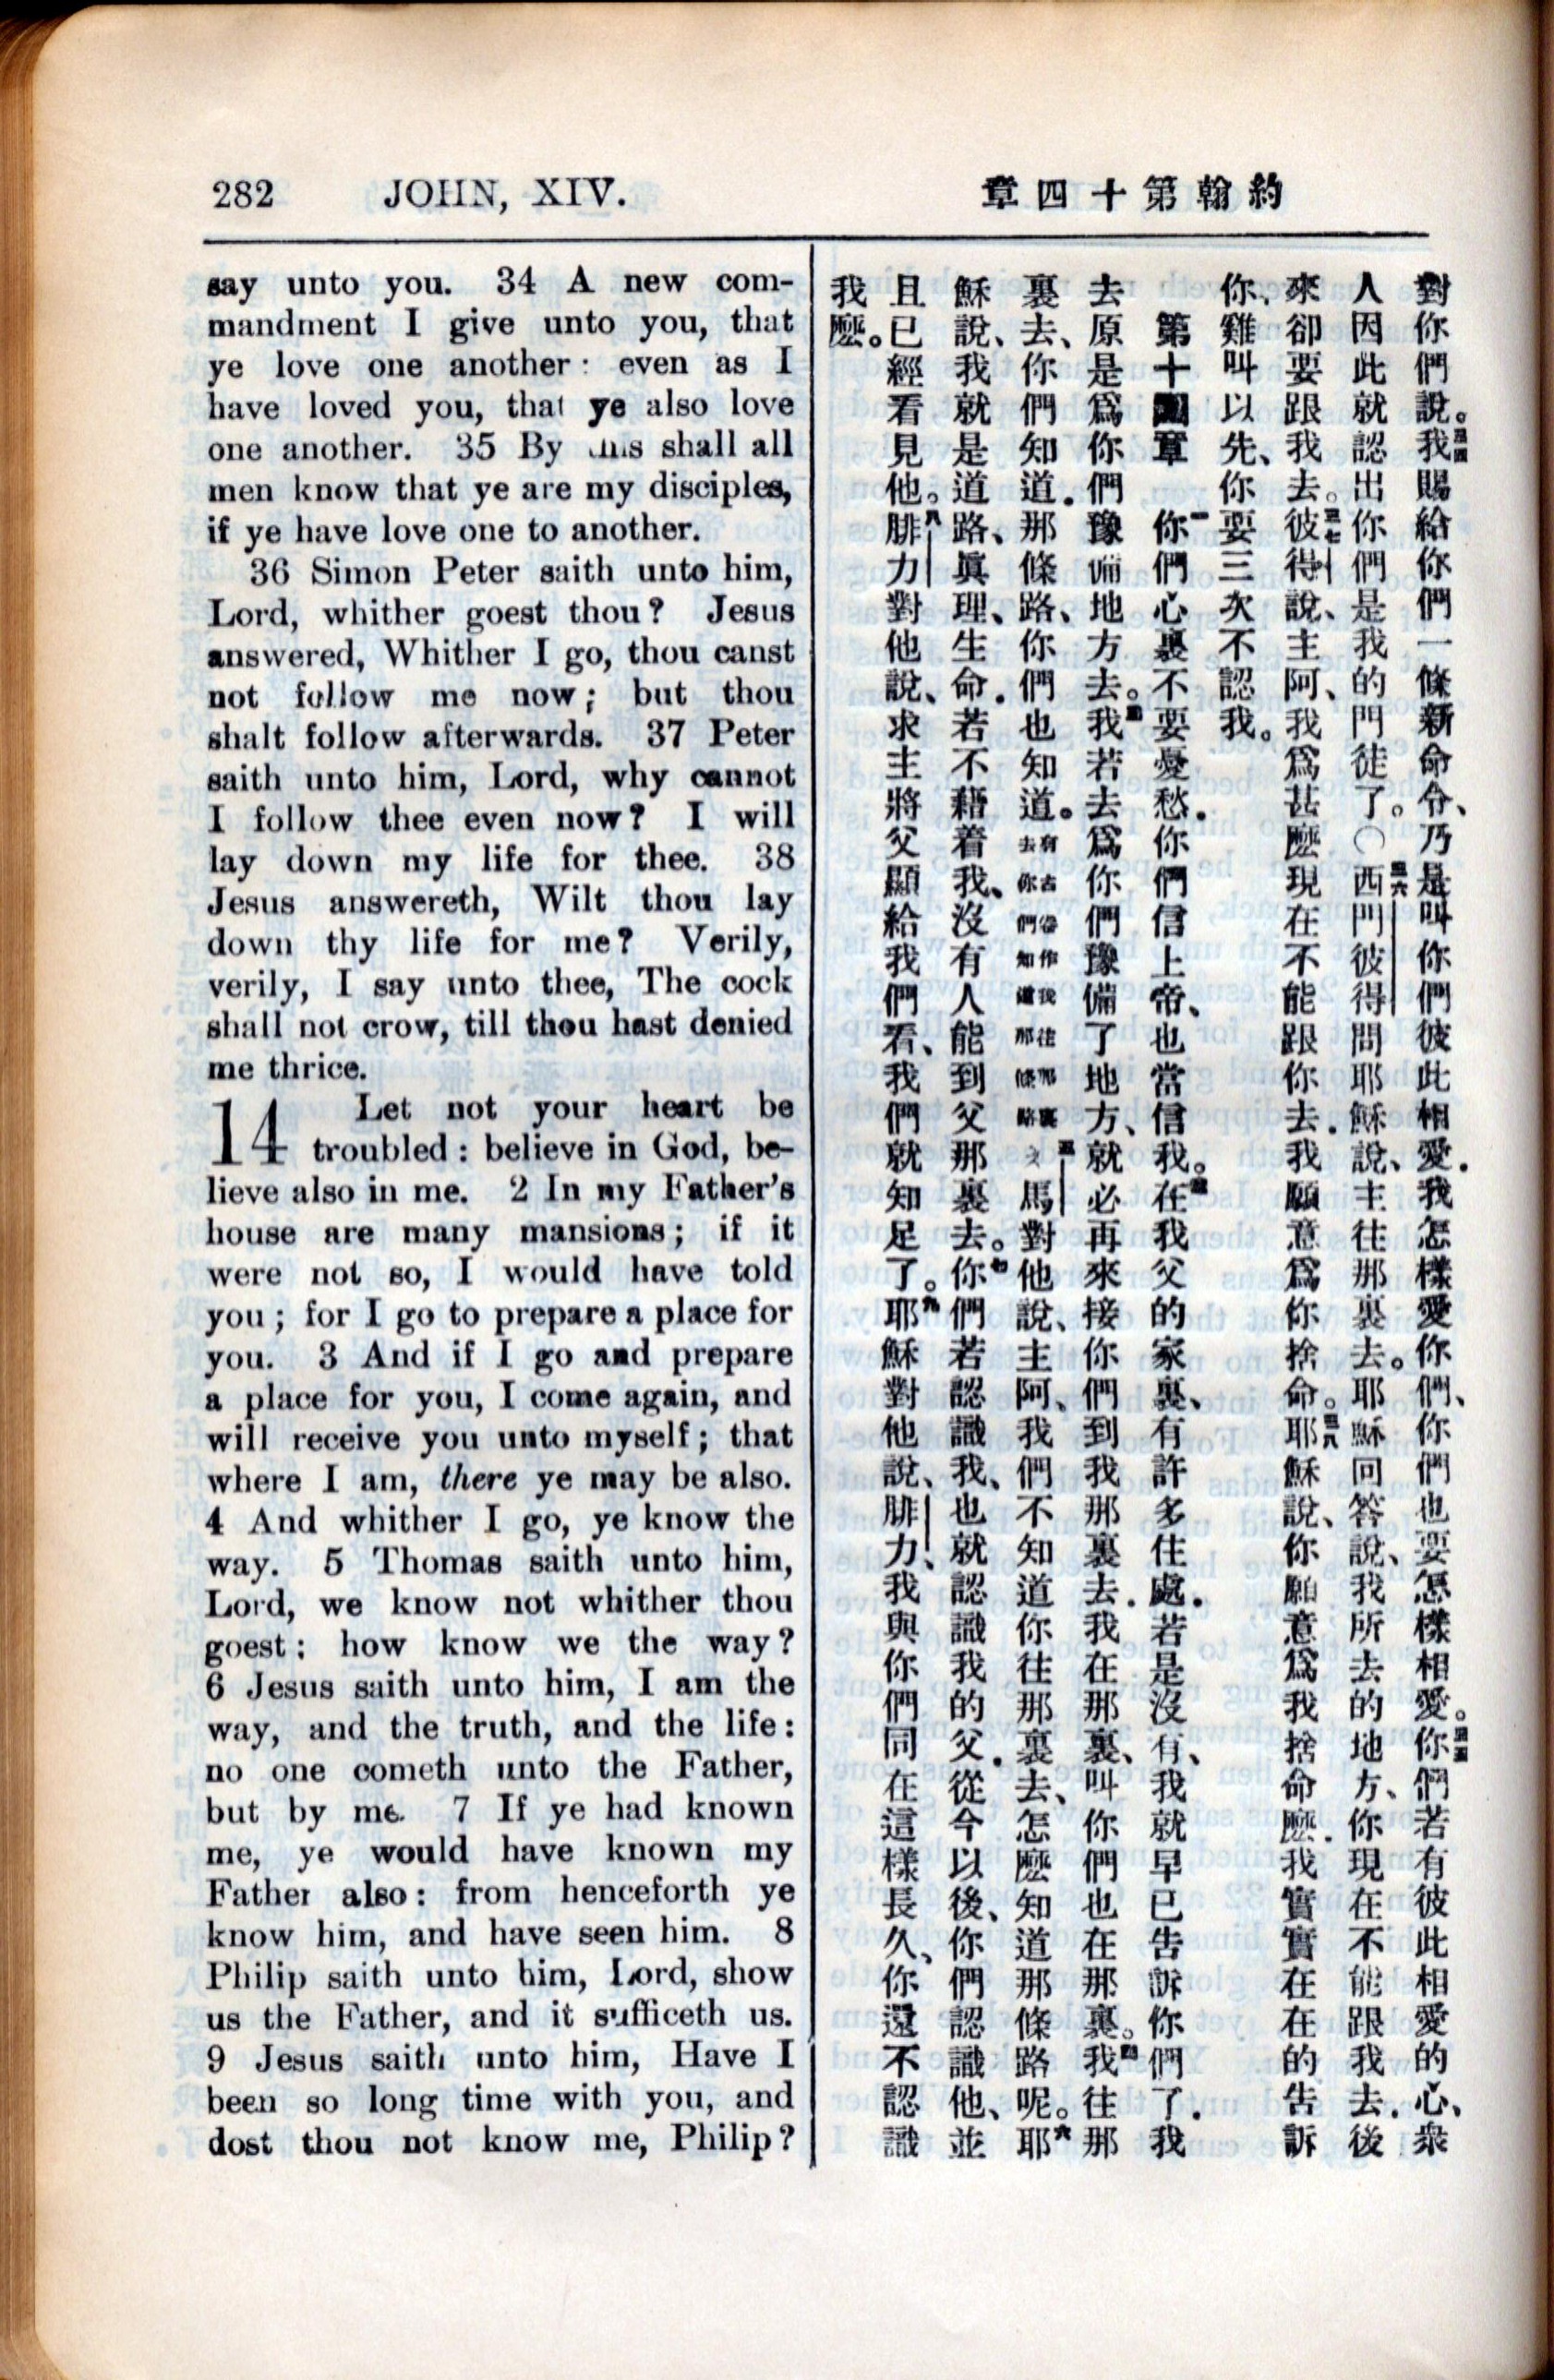 282 JOHN, XIV.
say unto you. 34 A new com-
mandment I give unto you, that
ye love one another: even as I
have loved you, that ye also love
one another. 35 By this shall all
men know that ye are my disciples,
if ye have love one to another.
36 Simon Peter saith unto him,
Lord, whither goest thou? Jesus
answered, Whither I go, thou canst
not follow me now; but thou
shalt follow afterwards. 37 Peter
saith unto him, Lord, why cannot
I follow thee even now? I will
lay down my life for thee. 38
Jesus answereth, Wilt thou lay
down thy life for me? Verily,
verily, I say unto thee, The cock
shall not crow, till thou hast denied
me thrice.
14 Let not your heart be
troubled: believe in God, be-
lieve also in me. 2 In my Father's
house are many mansions; if it
were not so, I would have told
you; for I go to prepare a place for
you. 3 And if I go and prepare
a place for you, I come again, and
will receive you unto myself; that
where I am, there ye may be also.
4 And whither I go, ye know the
way. 5 Thomas saith unto him,
Lord, we know not whither thou
goest: how know we the way?
6 Jesus saith unto him, I am the
way, and the truth, and the life:
no one cometh unto the Father,
but by me. 7 If ye had known
me, ye would have known my
Father also: from henceforth ye
know him, and have seen him. 8
Philip saith unto him, Lord, show
us the Father, and it sufficeth us.
9 Jesus saith unto him, Have I
been so long time with you, and
dost thou not know me, Philip?
約翰第十四章
對你們說。三四我賜給你們一條新命令、乃是叫你們彼此相愛．我怎樣愛你們、你們也要怎樣相愛。三五你們若有彼此相愛的心、衆
人因此就認出你們是我的門徒了。〇三六西門彼得問耶穌說、主往那裏去。耶穌回答說、我所去的地方、你現在不能跟我去．後
來卻要跟我去。三七彼得說、主阿、我爲甚麼現在不能跟你去．我願意爲你捨命。三八耶穌說、你願意爲我捨命麼．我實實在在的告訴
你、雞叫以先、你要三次不認我。
第十四章 一你們心裏不要憂愁．你們信上帝、也當信我。二在我父的家裏、有許多住處．若是沒有、我就早已告訴你們了．我
去原是爲你們豫備地方去。三我若去爲你們豫備了地方、就必再來接你們到我那裏去．我在那裏、叫你們也在那裏。四我往那
裏去、你們知道．那條路、你們也知道。有古卷作我往那裏去你們知道那條路 五多馬對他說、主阿、我們不知道你往那裏去、怎麼知道那條路呢。六耶
穌說、我就是道路、眞理、生命．若不藉着我、沒有人能到父那裏去。七你們若認識我、也就認識我的父．從今以後、你們認識他、並
且已經看見他。八腓力對他說、求主將父顯給我們看、我們就知足了。九耶穌對他說、腓力、我與你們同在這樣長久、你還不認識
我麼。